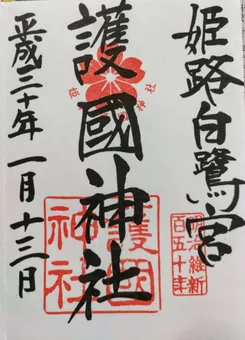 姫路白鷺宮
護國神社
平成三十年一月十三日
護國
神社
明治維新
百五十年